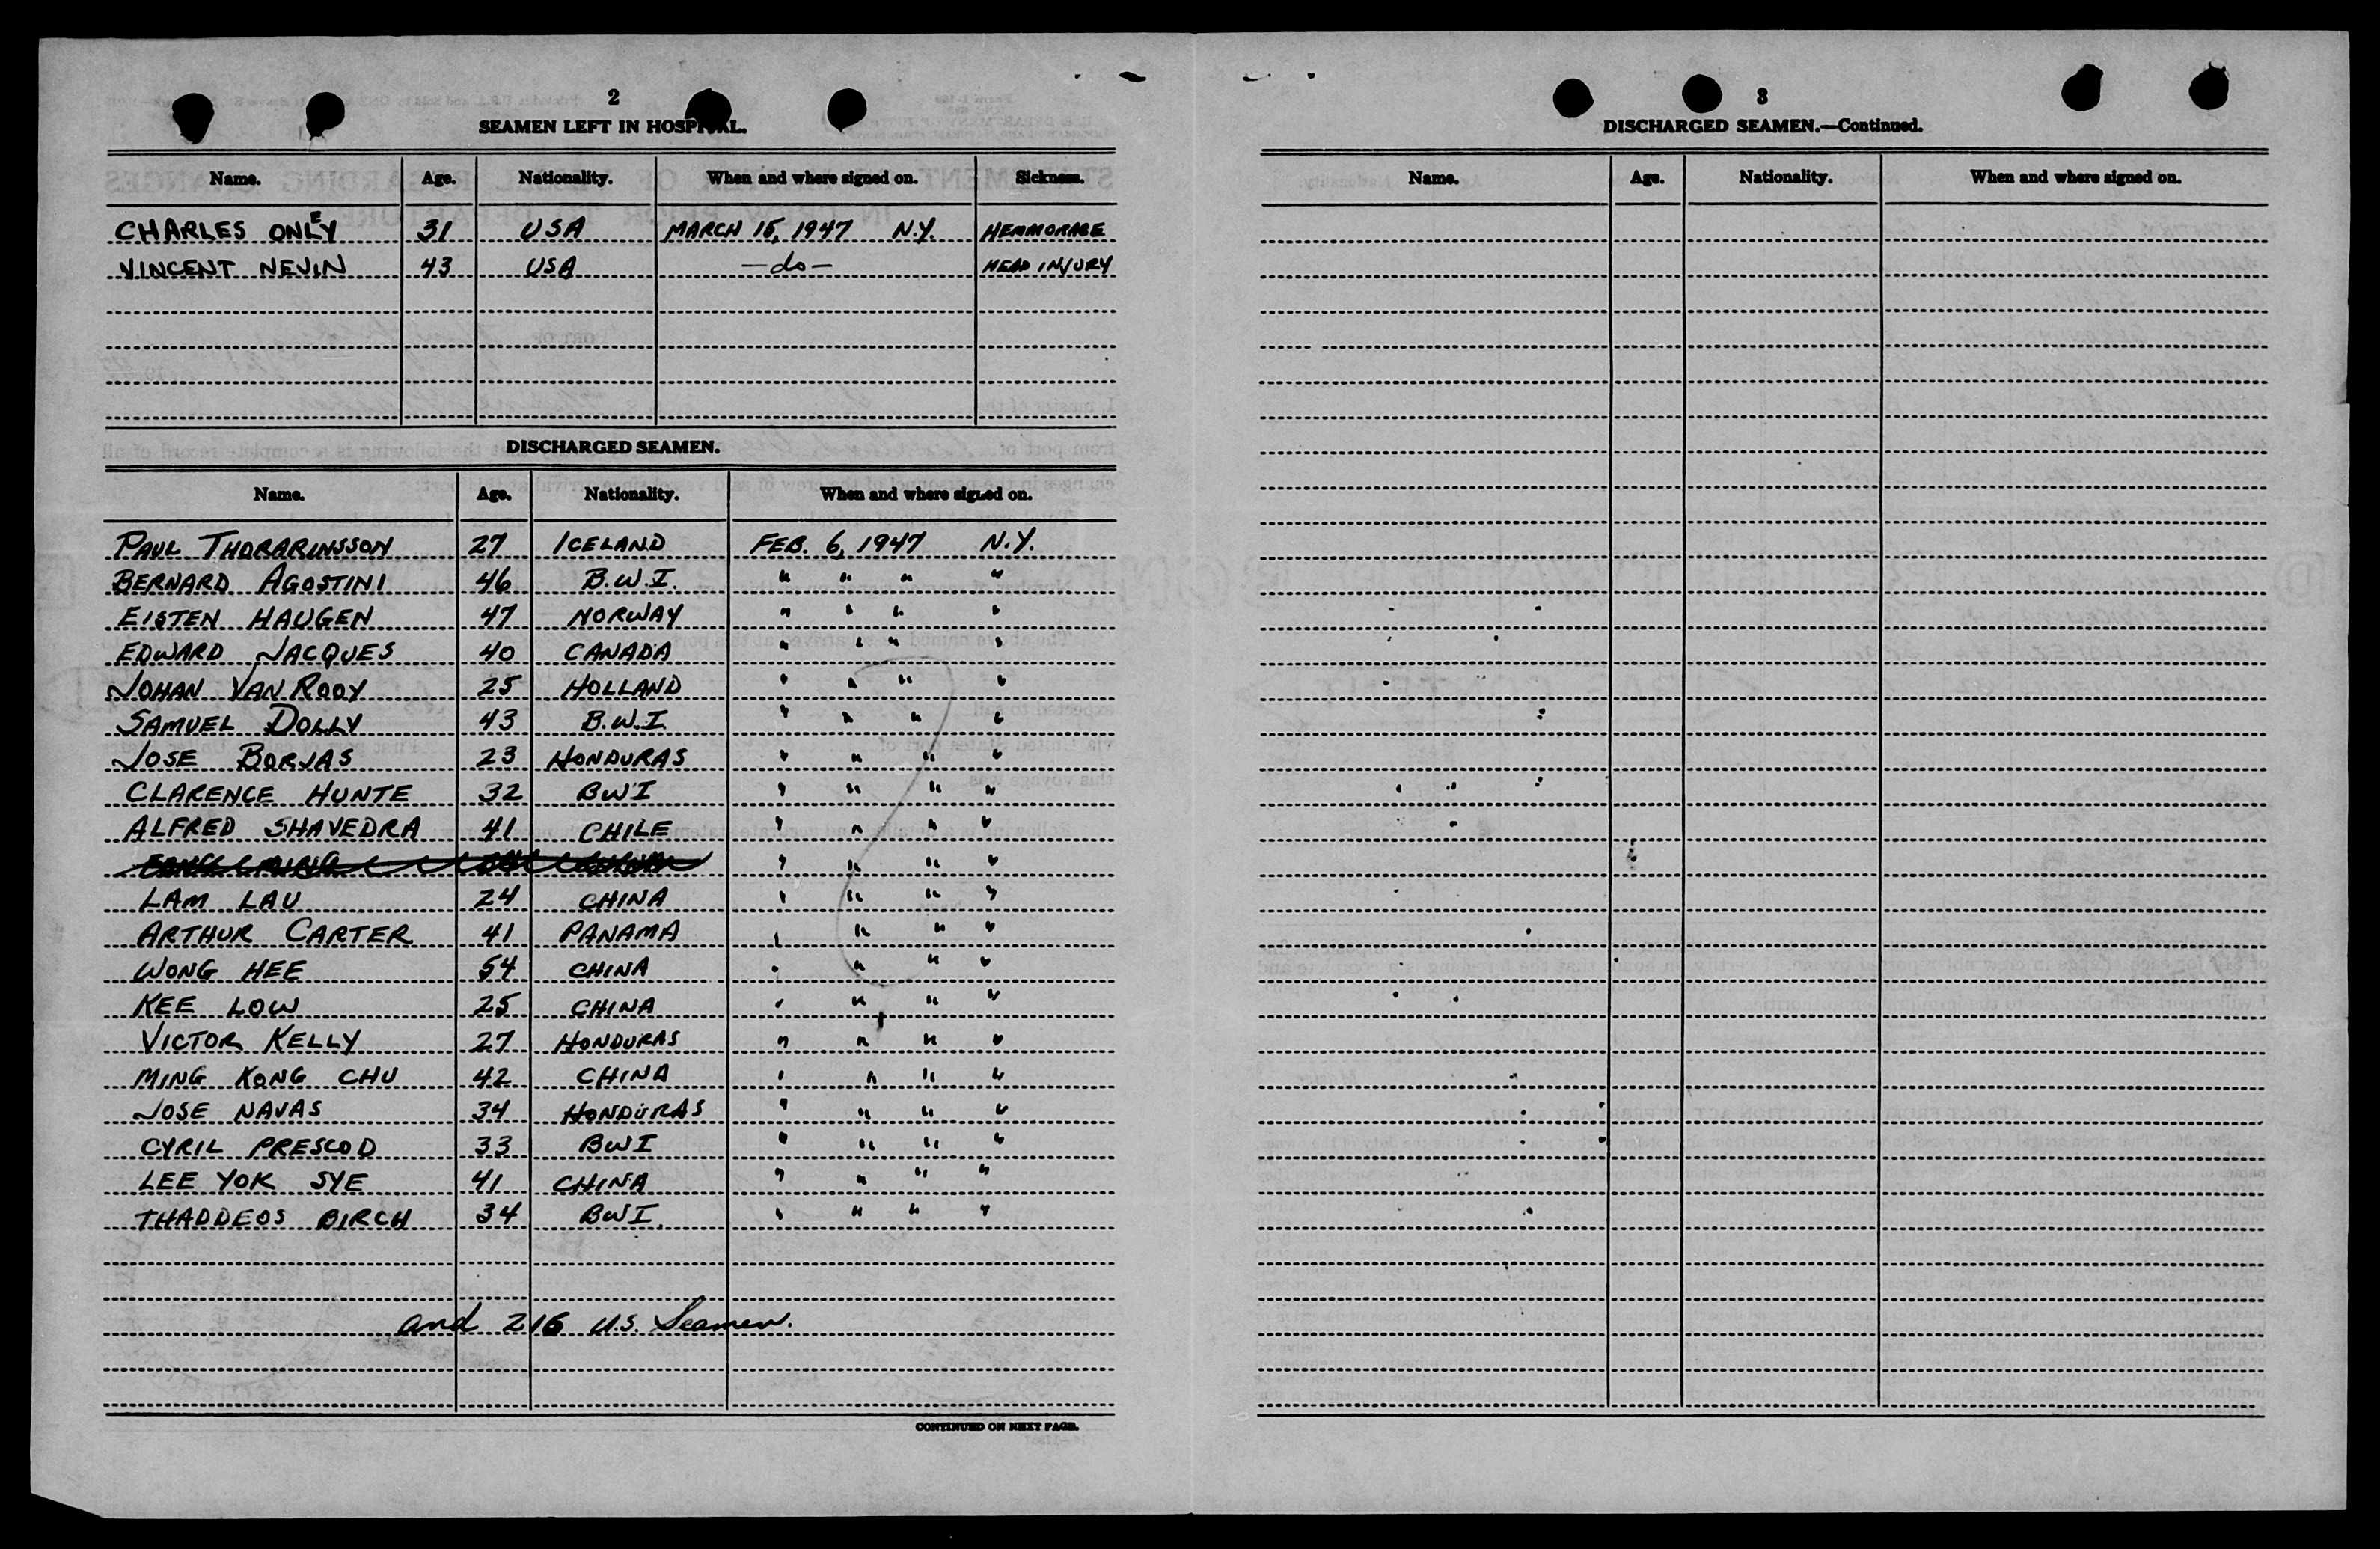 2
SEAMEN LEFT IN HOSPITAL.
Name. Age. Nationality. When and where signed on. Sickness.
CHARLES ONLEY 31 USA MARCH 15, 1947 N.Y. HEMMORAGE
VINCENT NEVIN 43 USA —do— HEAD INJURY
DISCHARGED SEAMEN.
Name. Age. Nationality. When and where signed on.
PAUL THORARINSSON 27 ICELAND FEB. 6, 1947 N.Y.
BERNARD AGOSTINI 46 B.W.I. " " " "
EISTEN HAUGEN 47 NORWAY " " " "
EDWARD JACQUES 40 CANADA " " " "
JOHAN VAN ROOY 25 HOLLAND " " " "
SAMUEL DOLLY 43 B.W.I. " " " "
JOSE BORJAS 23 HONDURAS " " " "
CLARENCE HUNTE 32 BWI " " " "
ALFRED SHAVEDRA 41 CHILE " " " "
" " " "
LAM LAU 24 CHINA " " " "
ARTHUR CARTER 41 PANAMA " " " "
WONG HEE 54 CHINA " " " "
KEE LOW 25 CHINA " " " "
VICTOR KELLY 27 HONDURAS " " " "
MING KONG CHU 42 CHINA " " " "
JOSE NAVAS 34 HONDURAS " " " "
CYRIL PRESCOD 33 BWI " " " "
LEE YOK SYE 41 CHINA " " " "
THADDEOS BIRCH 34 BWI. " " " "
and 216 U.S. Seamen.
CONTINUED ON NEXT PAGE.
3
DISCHARGED SEAMEN.—Continued.
Name. Age. Nationality. When and where signed on.